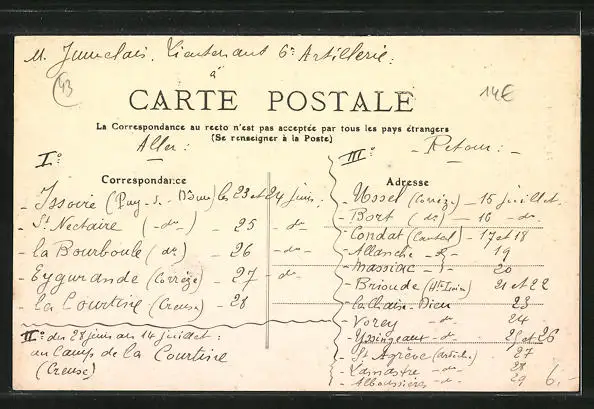 M. Jumelais. Lieutenant 6e Artillerie.
à
43
14€
CARTE POSTALE
La Correspondance au recto n'est pas acceptée par tous les pays étrangers
(Se renseigner à la Poste)
Aller:
Correspondance
I°
- Issoire (Puy-d-Dôme) les 23 et 24 juin.
- St Nectaire (-do-) - 25 - do-
- la Bourboule (do) - 26 - do-
- Eygurande (Corrèze) - 27 - do-
- la Courtine (Creuse) - 28
II° du 28 juin au 14 juillet:
au Camp de la Courtine
(Creuse)
III° - Retour: -
Adresse
- Ussel (Corrèze) - 15 juillet.
- Bort (do) - 16 - do-
- Condat (Cantal) - 17 et 18
- Allanche - d- 19
- Massiac - d- 20
- Brioude (Hte Loire) 21 et 22
- la Chaise-Dieu 23
- Vorey - do- 24
- Yssingeaux - do- 25 et 26
- St Agrève (Ardèch.) - 27
- Lamastre - do- 28
- Alboussières - do- 29
6.-